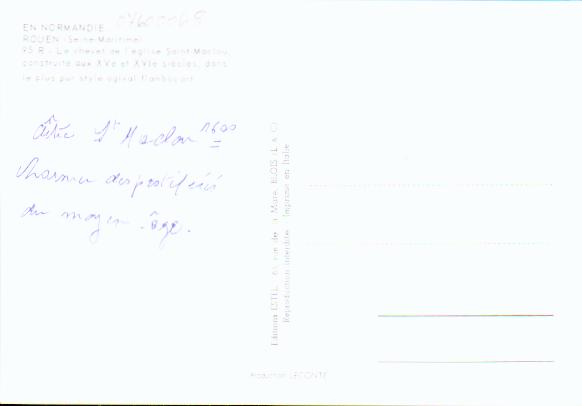 07600068
EN NORMANDIE
ROUEN (Seine-Maritime)
95 R - Le chevet de l'église Saint-Maclou,
construite aux XVe et XVIe siècles, dans
le plus pur style ogival flamboyant
St Maclou 1600
charnier des pestiférés
du moyen-âge.
Editions ESTEL, rue de la Maire, BLOIS (L. & C.)
Reproduction interdite Imprimé en Italie
Production LECONTE